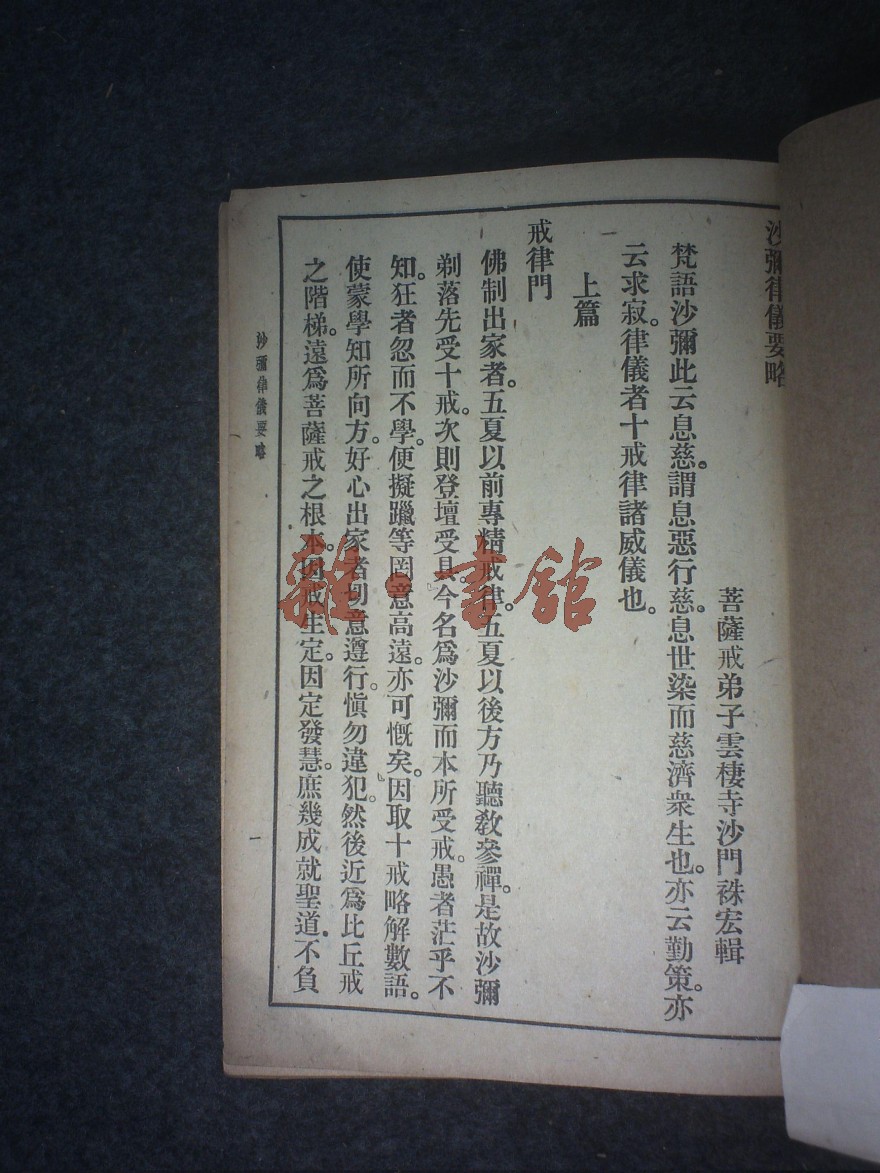 沙彌律儀要略
菩薩戒弟子雲棲寺沙門袾宏輯
梵語沙彌此云息慈。謂息惡行慈。息世染而慈濟衆生也。亦云勤策。亦
云求寂。律儀者十戒律諸威儀也。
上篇
戒律門
佛制出家者。五夏以前專精戒律。五夏以後方乃聽敎參禪。是故沙彌
剃落先受十戒。次則登壇受具。今名爲沙彌而本所受戒。愚者茫乎不
知。狂者忽而不學。便擬躐等罔意高遠。亦可慨矣。因取十戒略解數語。
使蒙學知所向方。好心出家者切意遵行。愼勿違犯。然後近爲比丘戒
之階梯。遠爲菩薩戒之根本。因戒生定。因定發慧。庶幾成就聖道。不負
沙彌律儀要略
一
雜·書館